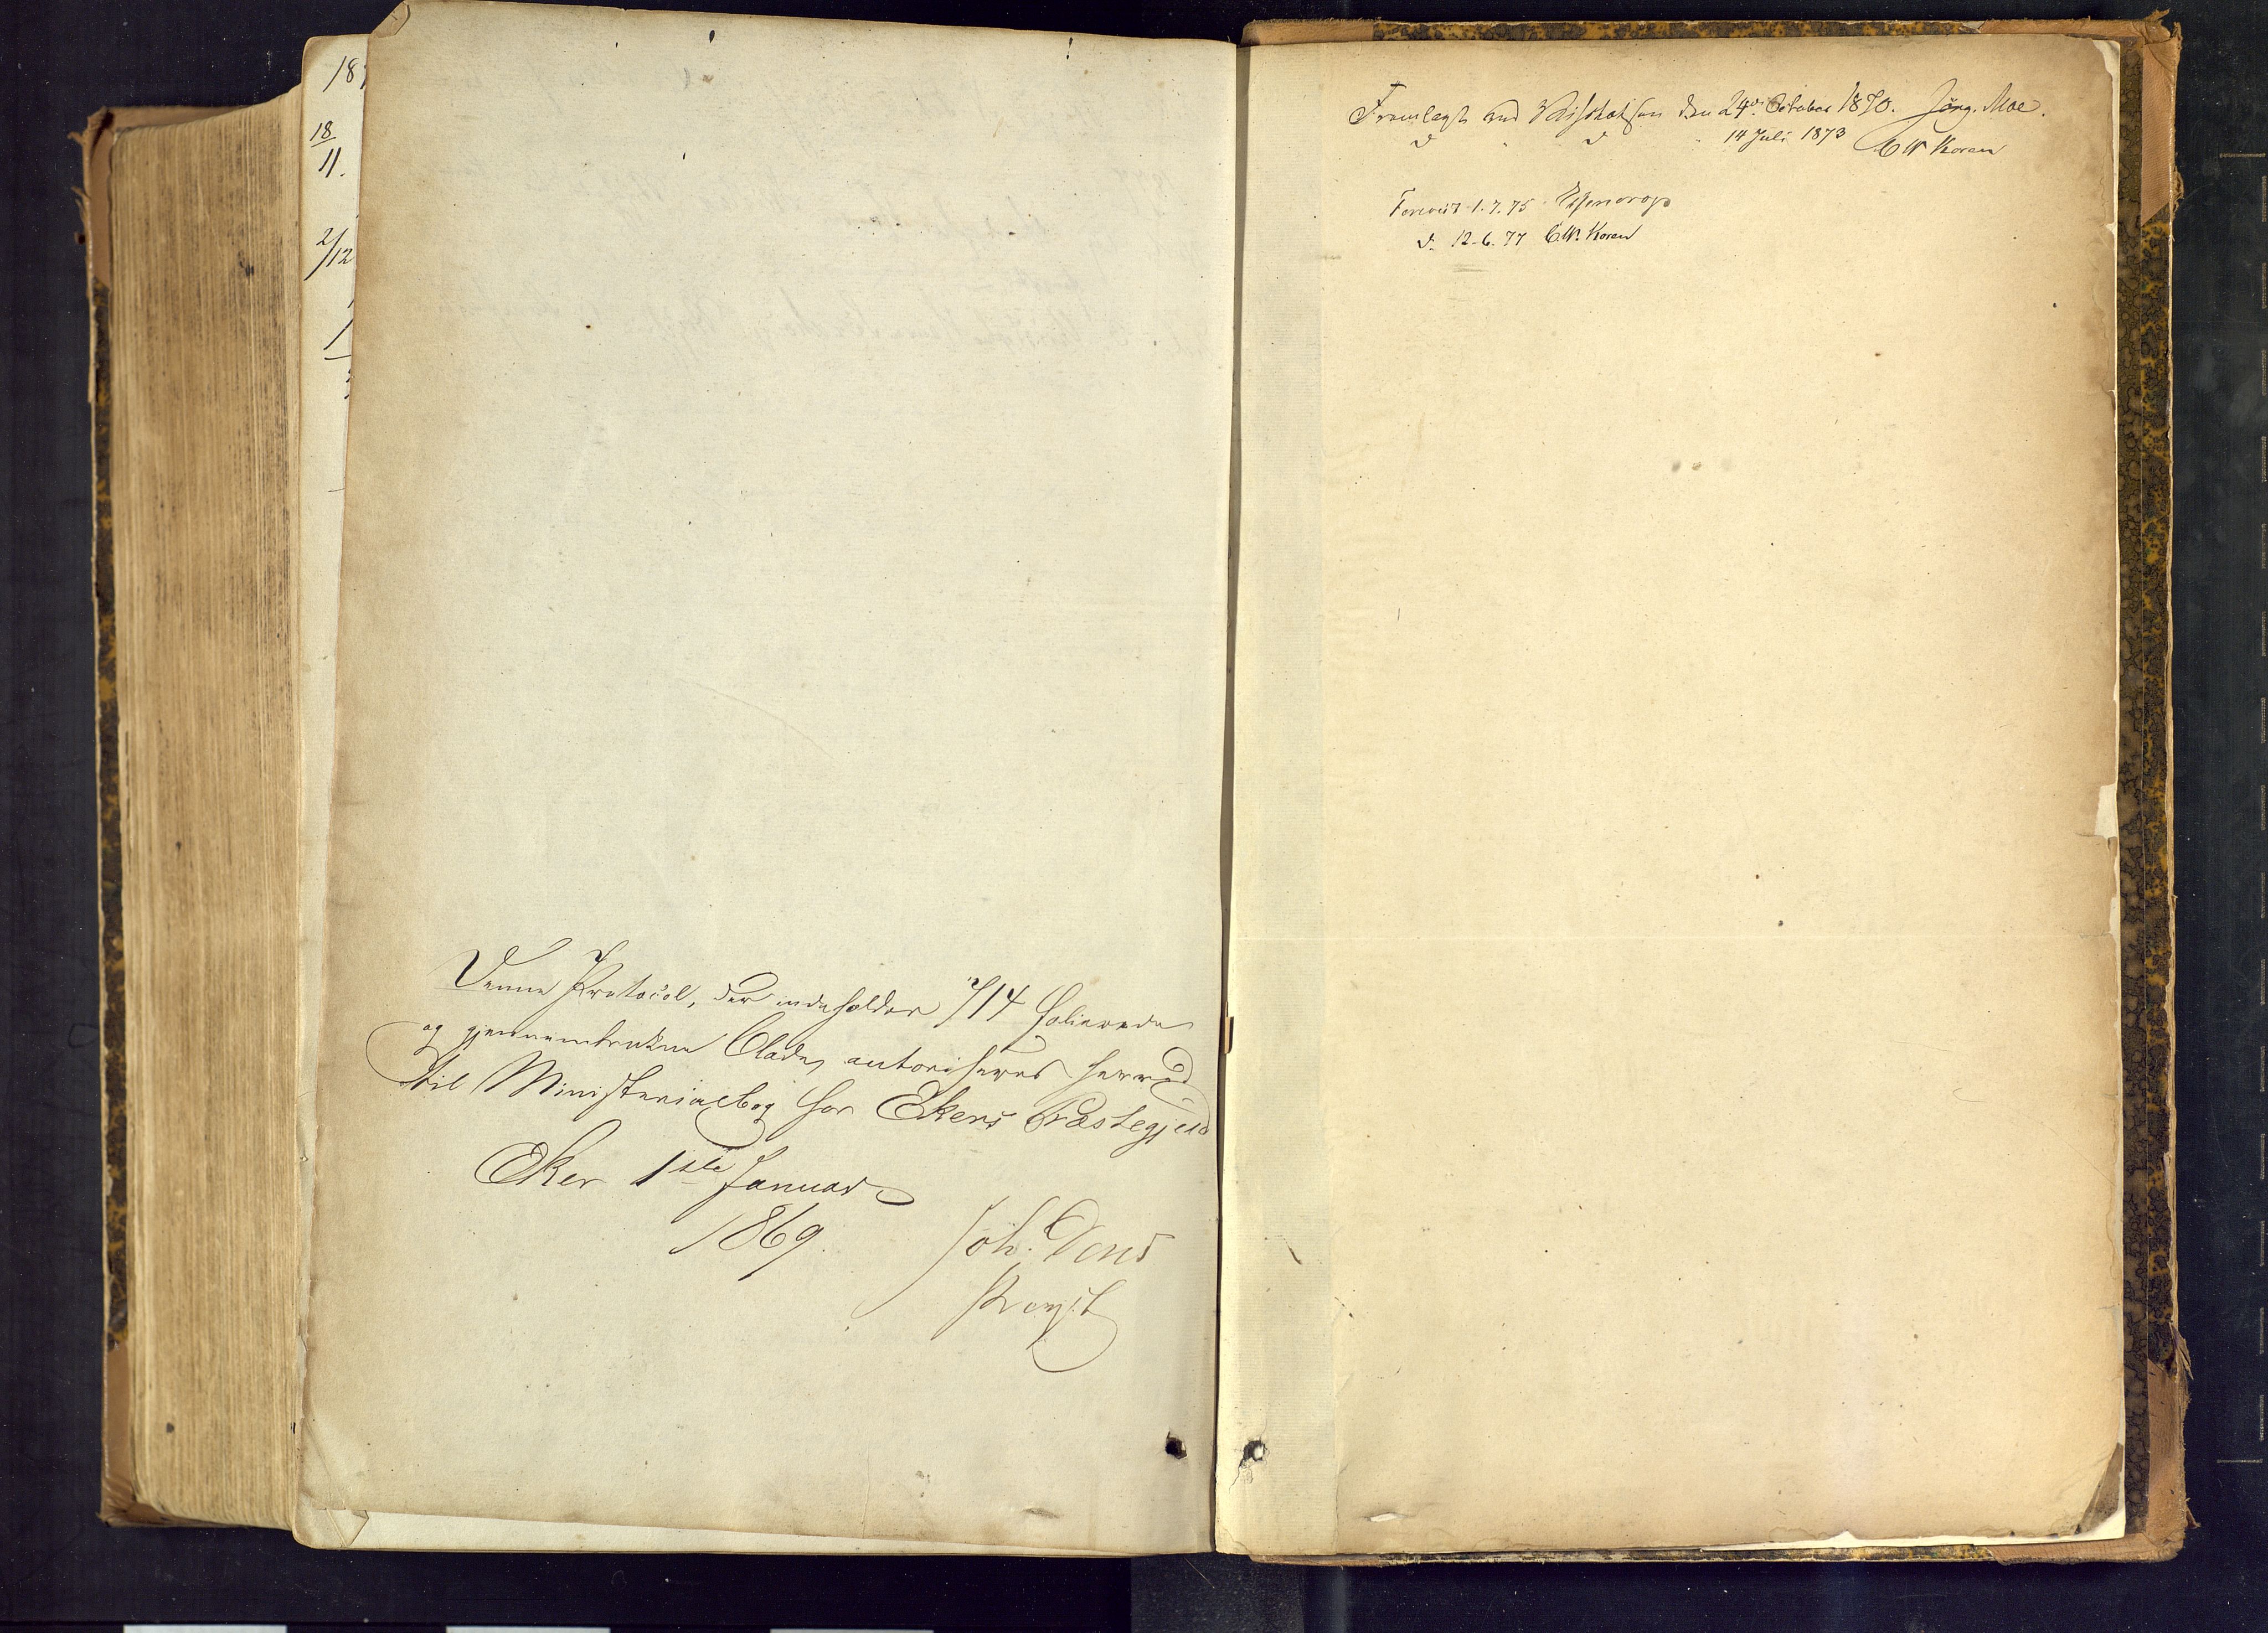 18
18
11.
2/12
Denne Protocol, der indeholder 714 folierede
og gjennemtrukne Blade, autoriseres herved
til Ministerialbog for Ekers Præstegjeld
Eker 1ste Januar
1869.
Joh. Dons
Provst
Fremlagt ved Visitatsen den 24de October 1870. Jörg. Moe.
d d 14 Juli 1873 C W Koren
Foreviist 1.7.75 Essendrop
d. 12-6.77 C.W. Koren